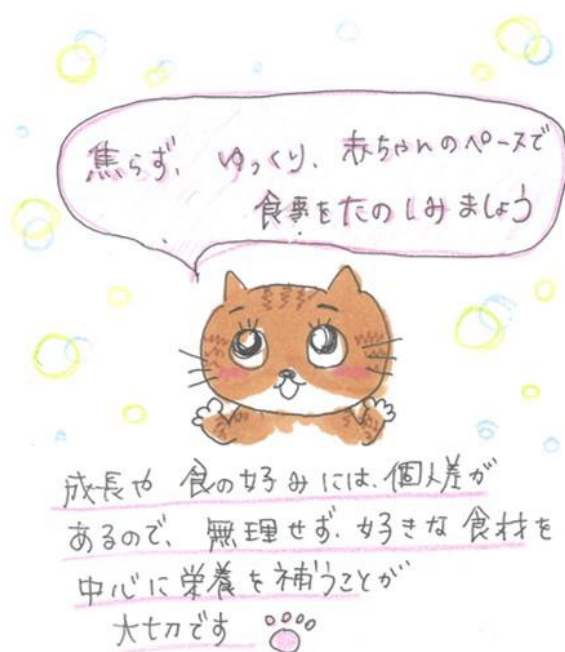 焦らず、ゆっくり、赤ちゃんのペースで
食事をたのしみましょう
成長や食の好みには、個人差が
あるので、無理せず、好きな食材を
中心に栄養を補うことが
大切です